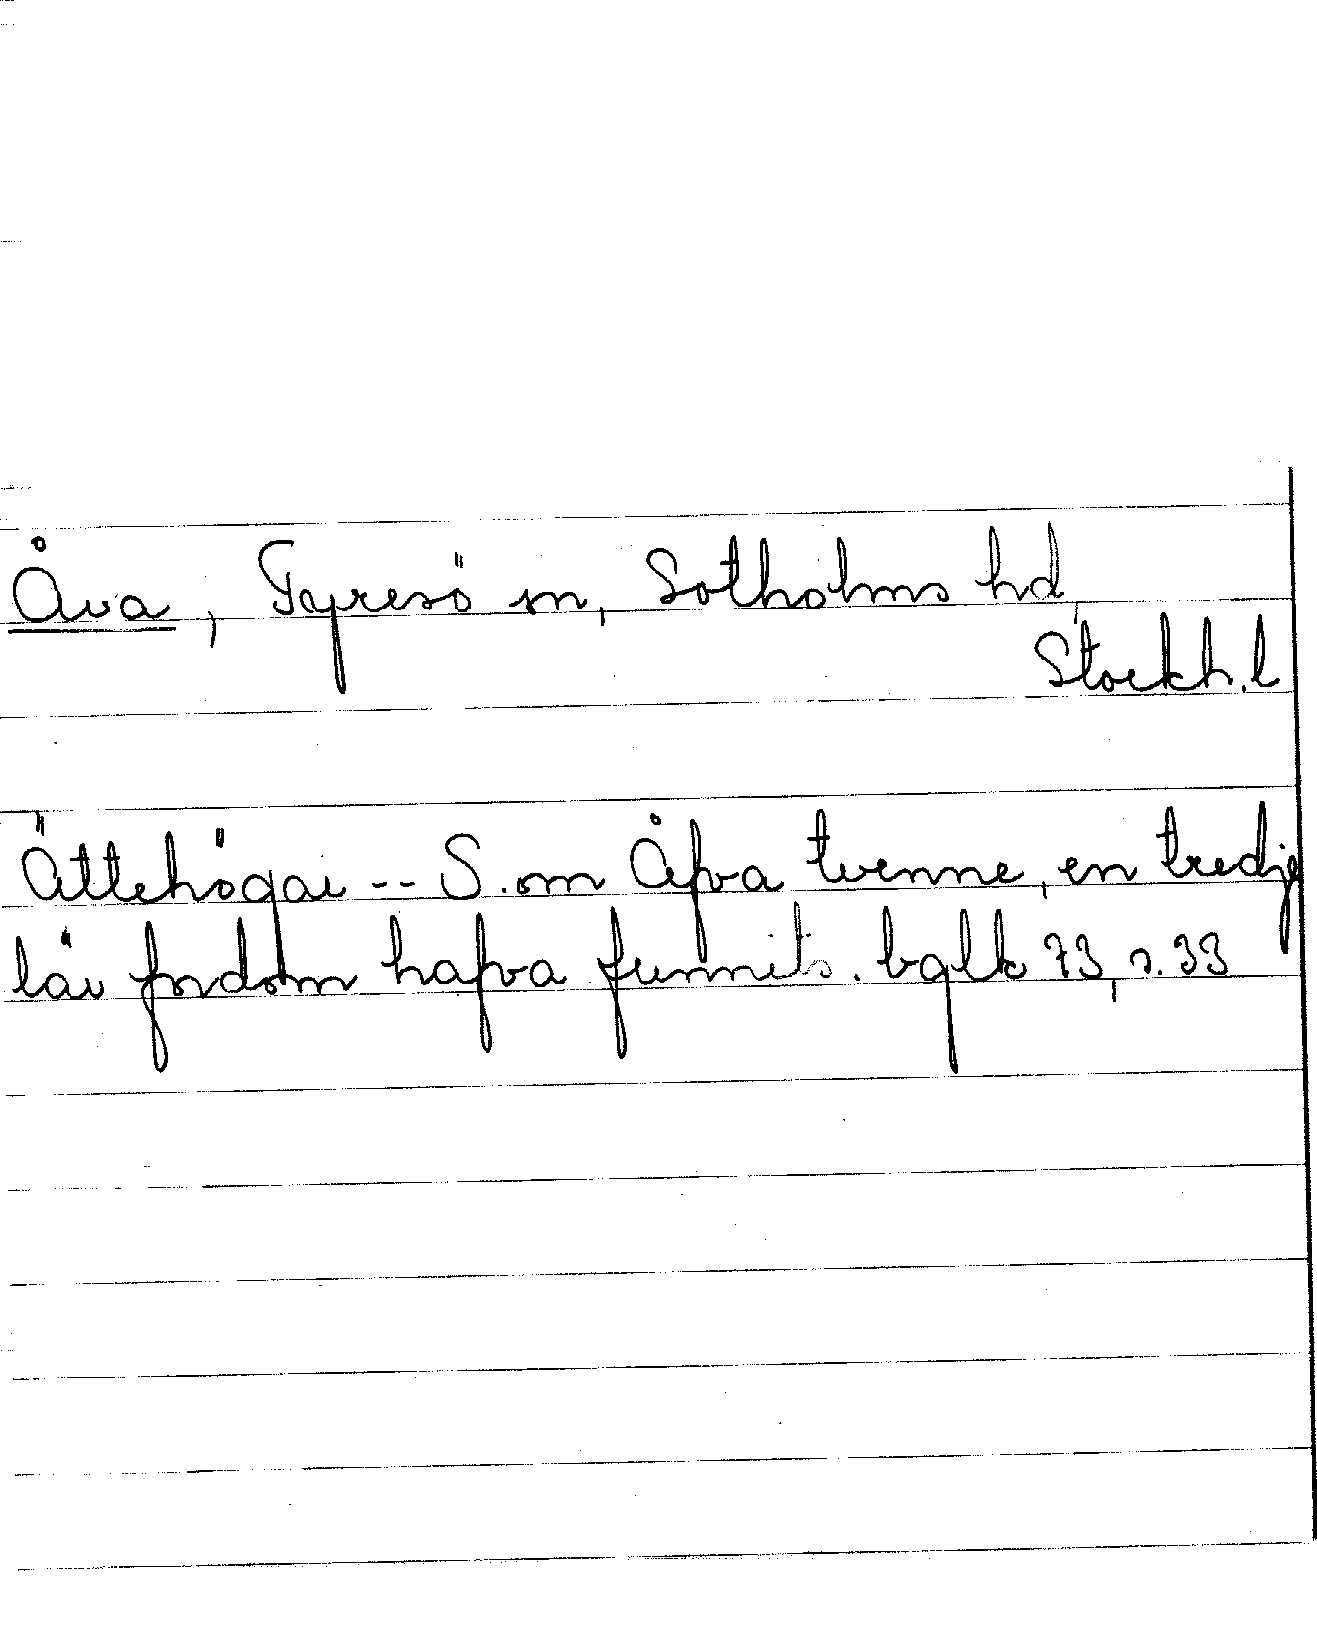 Åva, Tyresö sn, Sotholms hd,
Stockh. l
Ättehögar -- S. om Åfva tvenne, en tredje
lär fordom hafva funnits. bglk 73, s. 33